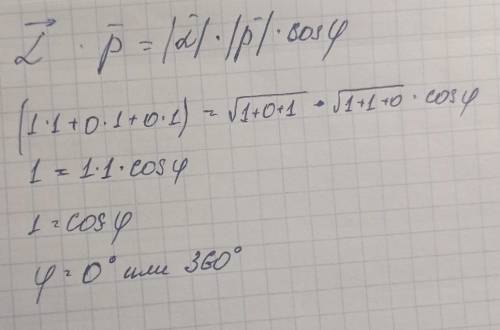 α⃗ · p̄ = |ᾱ| · |p̄| · cosφ
(1·1+0·1+0·1) = √(1+0+1) · √(1+1+0) · cosφ
1 = 1·1·cosφ
1 = cosφ
φ = 0° или 360°